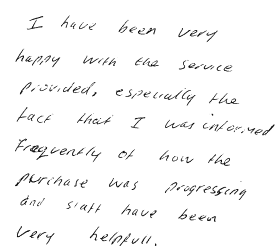 I have been very
happy with the service
provided, especially the
fact that I was informed
frequently of how the
purchase was progressing
and staff have been
very helpfull.